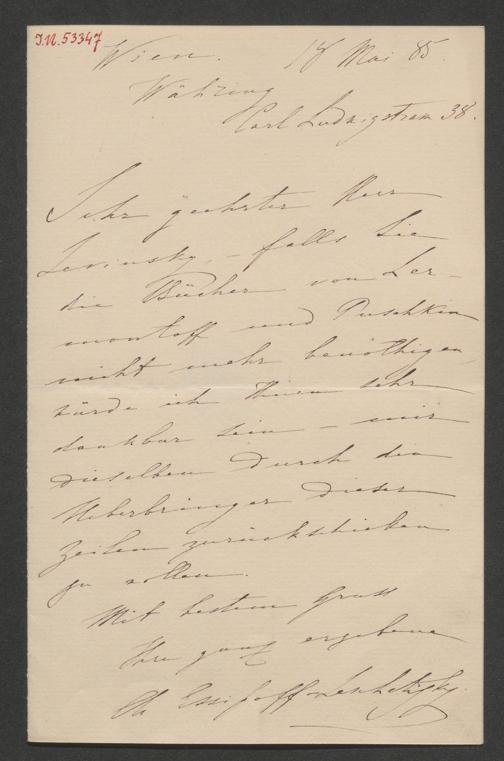 J.N. 53347
Wien. 18 Mai 85.
Währing
Carl Ludwigstrasse 38.
Sehr geehrter Herr
Levinsky, – falls Sie
die Bücher von Ler-
montoff und Puschkin
nicht mehr benöthigen,
würde ich Ihnen sehr
dankbar sein – mir
dieselben durch den
Ueberbringer dieser
Zeilen zurückschicken
zu wollen.
Mit bestem Gruss
Ihre ganz ergebene
Essipoff-Leschetizky.